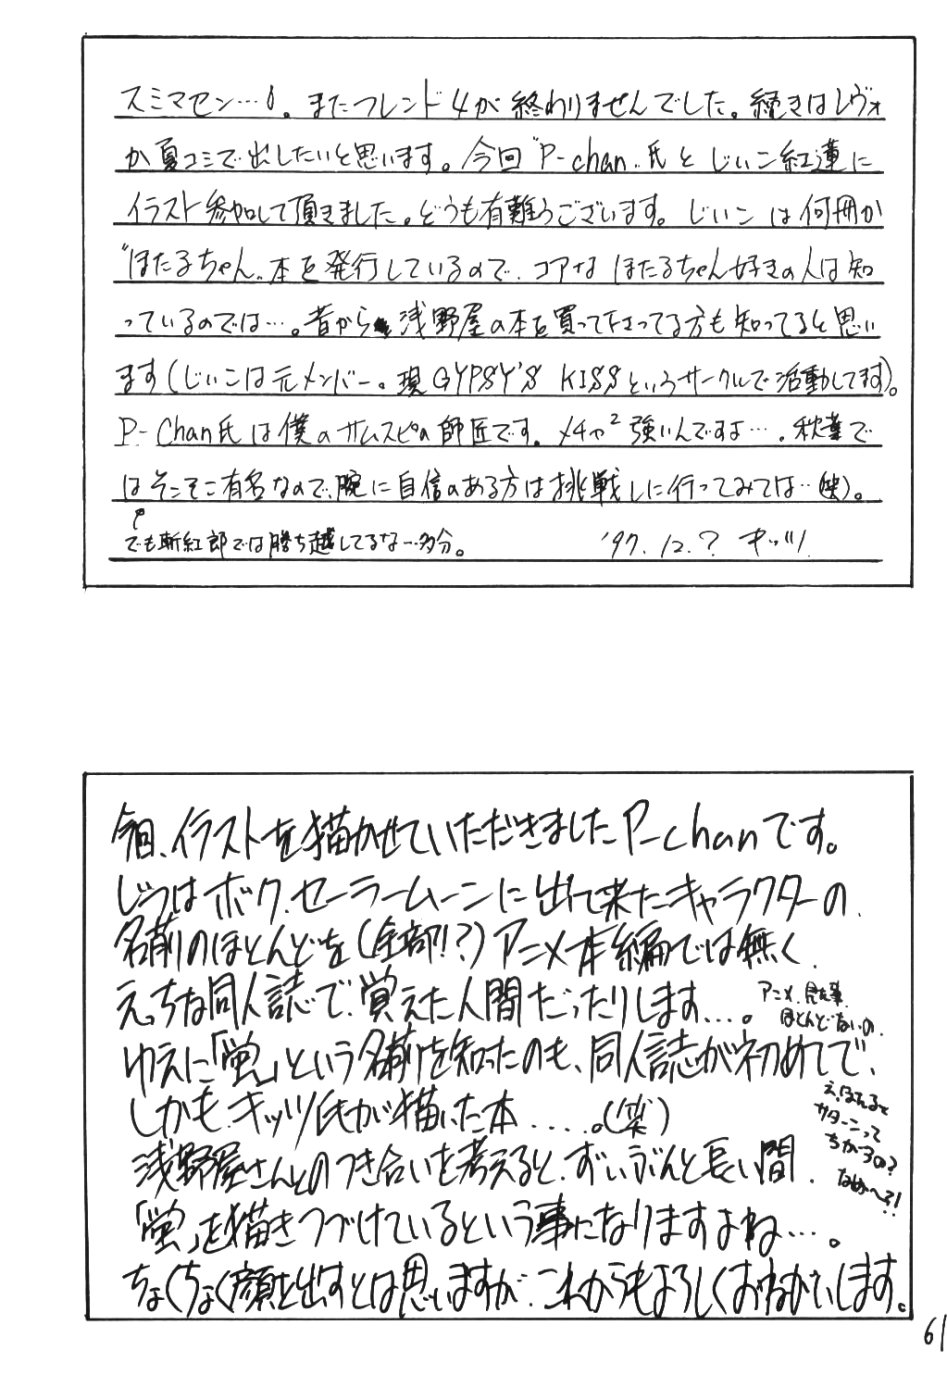 スミマセン…。またフレンド4が終わりませんでした。続きはレヴォ
か夏コミで出したいと思います。今回"P-chan"氏とじぃこ紅蓮に
イラスト参加して頂きました。どうも有難うございます。じぃこは何冊か
"ほたるちゃん"本を発行しているので、コアなほたるちゃん好きの人は知
っているのでは…。昔から浅野屋の本を買って下さってる方も知ってると思い
ます(じぃこは元メンバー。現GYPSY'S KISSというサークルで活動してます)。
P-Chan氏は僕のサムスピの師匠です。メチャ2強いんですよ…。秋葉で
はそこそこ有名なので、腕に自信のある方は挑戦しに行ってみては…(笑)。
でも斬紅郎では勝ち越してるな…多分。 '97.12.? キッツ!
今回、イラストを描かせていただきましたP-chanです。
じつはボク、セーラームーンに出て来たキャラクターの
名前のほとんどを(全部!?)アニメ本編では無く、
えっちな同人誌で覚えた人間だったりします…。
アニメ、見た事
ほとんどないの。
ゆえに「蛍」という名前を知ったのも、同人誌が初めてで、
しかも、キッツ氏が描いた本……。(笑)
え、ほたると
サターンって
ちがうの?
なぬ〜?!
浅野屋さんとのつき合いを考えると、ずいぶんと長い間、
「蛍」を描きつづけているという事になりますよね…。
ちょくちょく顔を出すとは思いますが、これからもよろしくおねがいします。
61